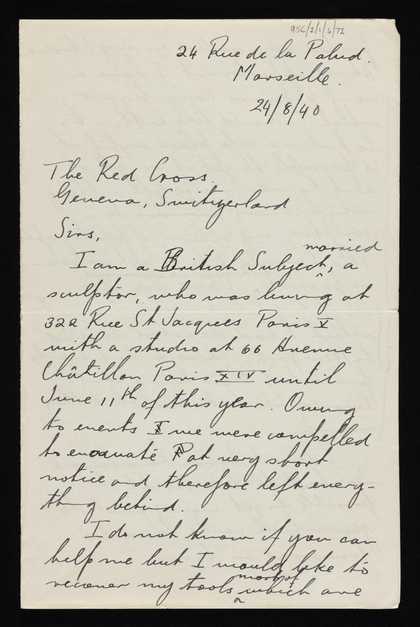 24 Rue de la Palud.
Marseille.
24/8/40
The Red Cross.
Geneva, Switzerland
Sirs,
married
I am a British Subject, a
sculptor, who was living at
32a Rue St Jacques Paris V
with a studio at 66 Avenue
Châtillon Paris XIV until
June 11th of this year. Owing
to events we were compelled
to evacuate at very short
notice and therefore left every-
thing behind.
I do not know if you can
help me but I would like to
most of
recover my tools which are